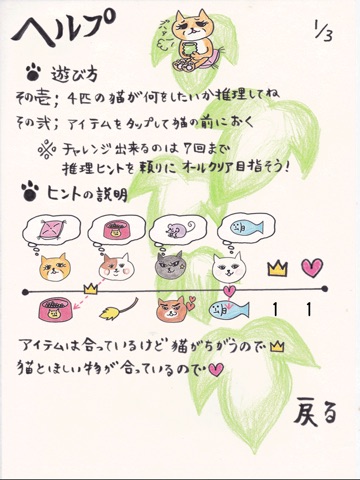 ヘルプ
1/3
遊び方
その壱；4匹の猫が何をしたいか推理してね
その弐；アイテムをタップして猫の前におく
※ チャレンジ出来るのは7回まで
推理ヒントを頼りにオールクリア目指そう！
ヒントの説明
1 1
アイテムは合っているけど猫がちがうので
猫とほしい物が合っているので
戻る